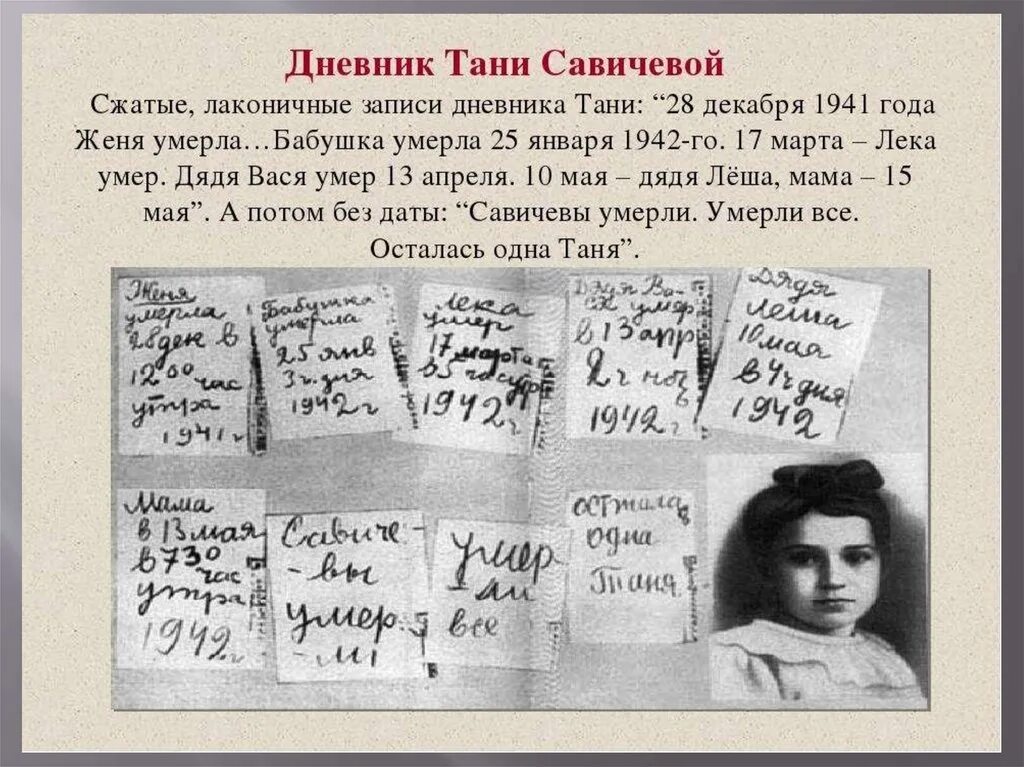 Дневник Тани Савичевой
Сжатые, лаконичные записи дневника Тани: “28 декабря 1941 года
Женя умерла…Бабушка умерла 25 января 1942-го. 17 марта – Лека
умер. Дядя Вася умер 13 апреля. 10 мая – дядя Лёша, мама – 15
мая”. А потом без даты: “Савичевы умерли. Умерли все.
Осталась одна Таня”.
Женя
умерла
28 дек в
12 00 час
утра
1941 г
Бабушка
умерла
25 янв
3 ч. дня
1942 г
Лека
умер
17 марта
в 5 час утр
1942 г
Дядя Ва-
ся умер
в 13 апр
2 ч ноч
1942 г
Дядя
Леша
10 мая
в 4 ч дня
1942
Мама
в 13 мая
в 7 30
час
утра
1942 г
Савиче-
-вы
умер.
-ли
умер
-ли
все
осталась
одна
Таня